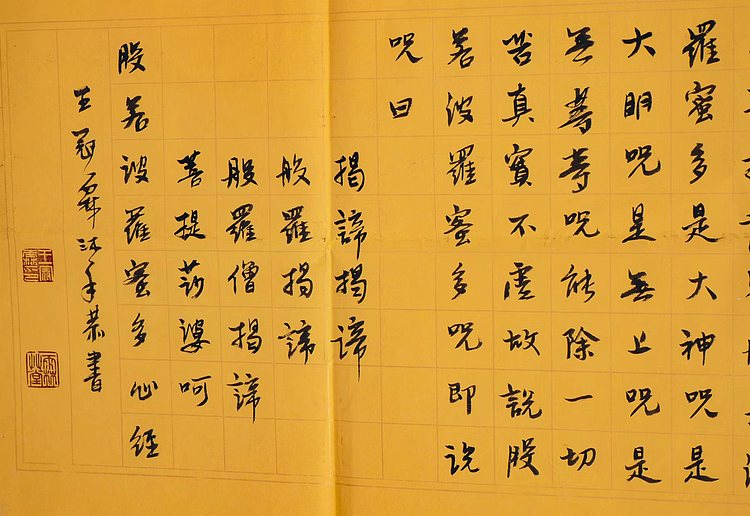 羅蜜多是大神呪是
大明呪是無上呪是
無等等呪能除一切
苦真實不虛故説般
若波羅蜜多呪即说
呪曰
揭諦揭諦
般羅揭諦
般羅僧揭諦
菩提莎婆呵
般若波羅蜜多心經
王冠沐手恭書